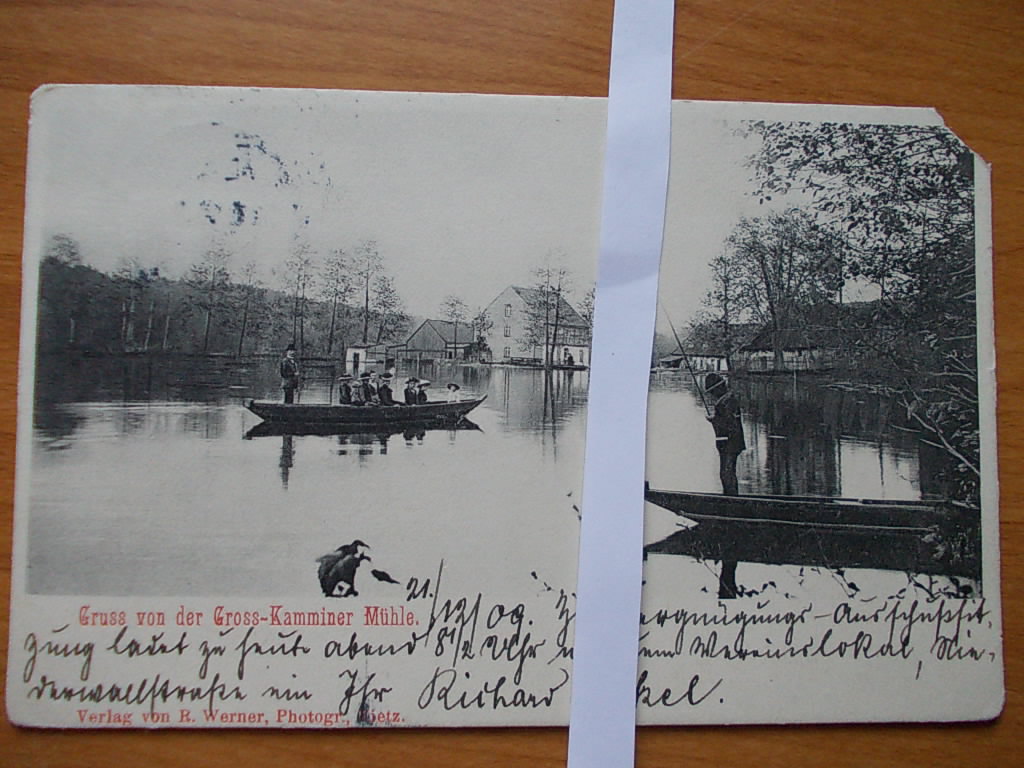 Gruss von der Gross-Kamminer Mühle.
21./12/09. Z ergnügungs-Ausschußsit,
zung ladet zu heute abend 8 1/2 Uhr em Vereinslokal, Nie-
derwallstraße ein Ihr Richard kel.
Verlag von R. Werner, Photogr., oetz.